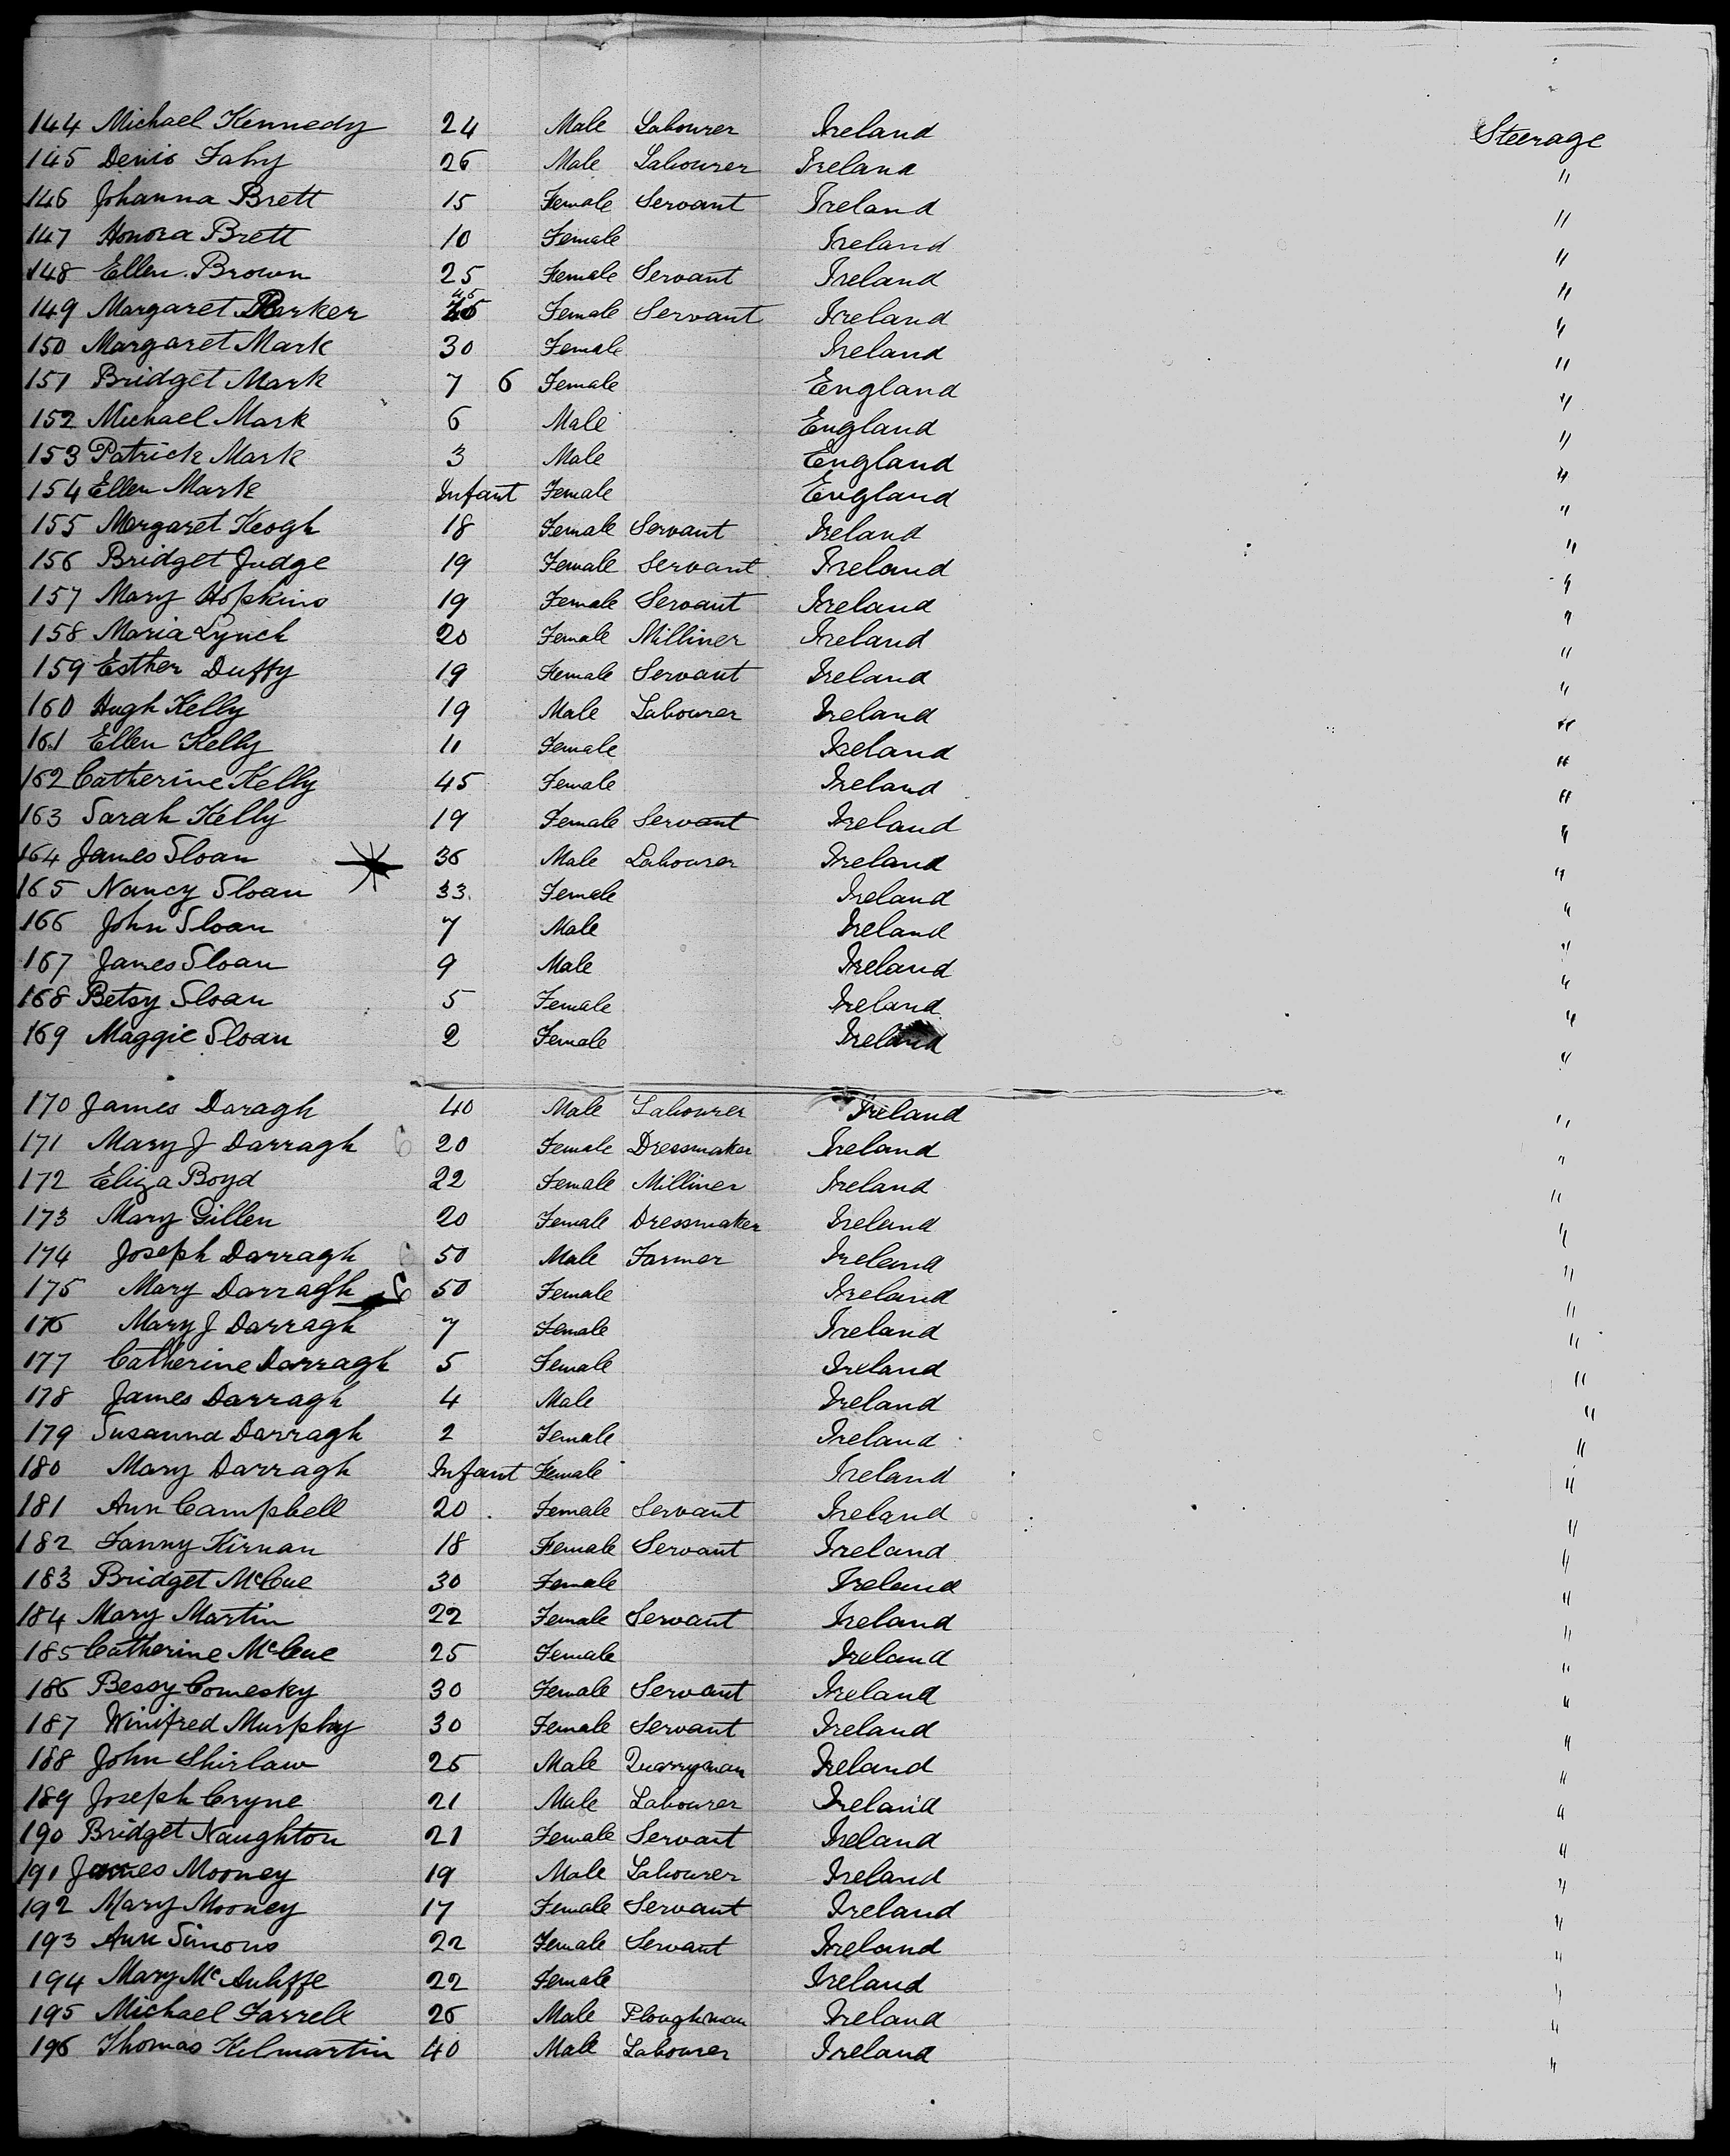 144 Michael Kennedy 24 Male Labourer Ireland Steerage
145 Denis Fahy 26 Male Labourer Ireland "
146 Johanna Brett 15 Female Servant Ireland "
147 Honora Brett 10 Female Ireland "
148 Ellen Brown 25 Female Servant Ireland "
149 Margaret 45 Female Servant Ireland "
150 Margaret Mark 30 Female Ireland "
151 Bridget Mark 7 6 Female England "
152 Michael Mark 6 Male England "
153 Patrick Mark 3 Male England "
154 Ellen Mark Infant Female England "
155 Margaret Keogh 18 Female Servant Ireland "
156 Bridget Judge 19 Female Servant Ireland "
157 Mary Hopkins 19 Female Servant Ireland "
158 Maria Lynch 20 Female Milliner Ireland "
159 Esther Duffy 19 Female Servant Ireland "
160 Hugh Kelly 19 Male Labourer Ireland "
161 Ellen Kelly 11 Female Ireland "
162 Catherine Kelly 45 Female Ireland "
163 Sarah Kelly 19 Female Servant Ireland "
164 James Sloan 36 Male Labourer Ireland "
165 Nancy Sloan 33 Female Ireland "
166 John Sloan 7 Male Ireland "
167 James Sloan 9 Male Ireland "
168 Betsy Sloan 5 Female Ireland "
169 Maggie Sloan 2 Female Ireland "
170 James Daragh 40 Male Labourer Ireland "
171 Mary J Darragh 20 Female Dressmaker Ireland "
172 Eliza Boyd 22 Female Milliner Ireland "
173 Mary Gillen 20 Female Dressmaker Ireland "
174 Joseph Darragh 50 Male Farmer Ireland "
175 Mary Darragh 50 Female Ireland "
176 Mary J Darragh 7 Female Ireland "
177 Catherine Darragh 5 Female Ireland "
178 James Darragh 4 Male Ireland "
179 Susanna Darragh 2 Female Ireland "
180 Mary Darragh Infant Female Ireland "
181 Ann Campbell 20 Female Servant Ireland "
182 Fanny Kirnan 18 Female Servant Ireland "
183 Bridget McCue 30 Female Ireland "
184 Mary Martin 22 Female Servant Ireland "
185 Catherine McCue 25 Female Ireland "
186 Bessy Comesky 30 Female Servant Ireland "
187 Winifred Murphy 30 Female Servant Ireland "
188 John Shirlaw 25 Male Quarryman Ireland "
189 Joseph Cryne 21 Male Labourer Ireland "
190 Bridget Naughton 21 Female Servant Ireland "
191 James Mooney 19 Male Labourer Ireland "
192 Mary Mooney 17 Female Servant Ireland "
193 Ann Simons 22 Female Servant Ireland "
194 Mary McAuliffe 22 Female Ireland "
195 Michael Farrell 26 Male Ploughman Ireland "
196 Thomas Kilmartin 40 Male Labourer Ireland "